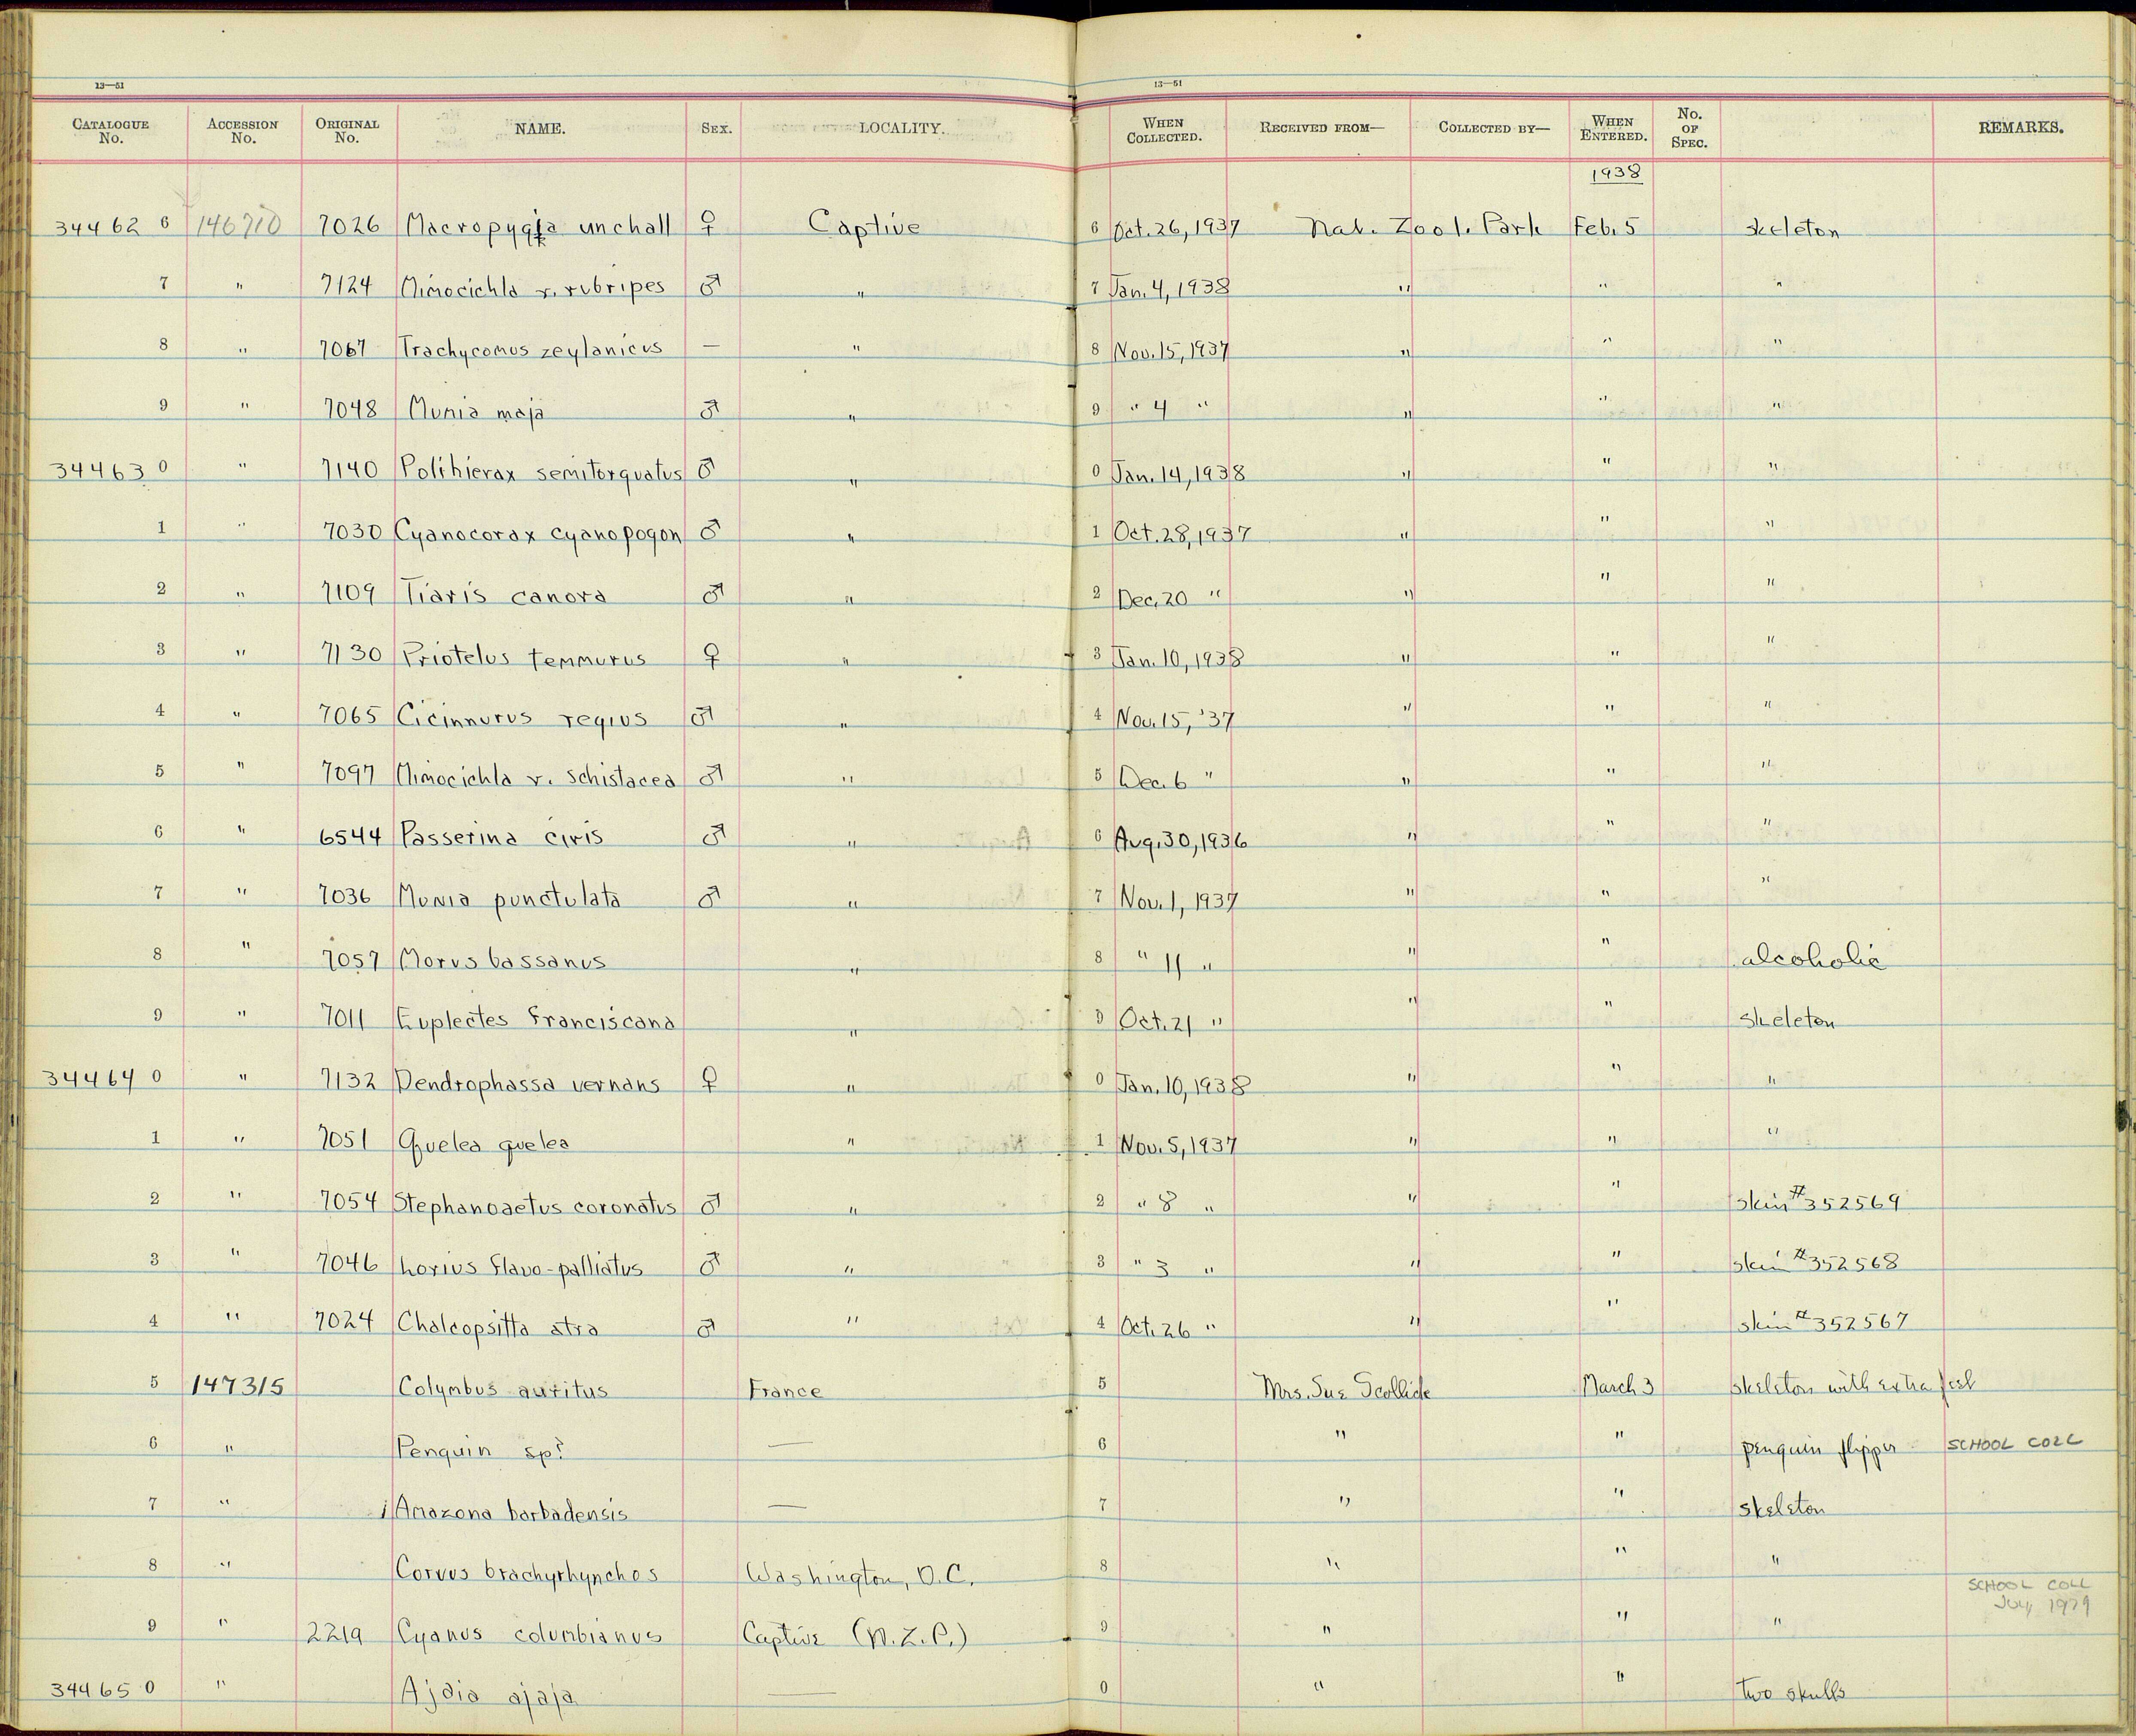 13—51 13—51
CATALOGUE No. ACCESSION No. ORIGINAL No. NAME. SEX. LOCALITY. WHEN COLLECTED. RECEIVED FROM— COLLECTED BY— WHEN ENTERED. No. OF SPEC. REMARKS.
1938
34462 6 146710 7026 Macropygia unchall ♀ Captive 6 Oct. 26, 1937 Nat. Zool. Park Feb. 5 skeleton
7 " 7124 Mimocichla r. rubripes ♂ " 7 Jan. 4, 1938 " " "
8 " 7067 Trachycomus zeylanicus — " 8 Nov. 15, 1937 " " "
9 " 7048 Munia maja ♂ " 9 " 4 " " " "
34463 0 " 7140 Polihierax semitorquatus ♂ " 0 Jan. 14, 1938 " " "
1 " 7030 Cyanocorax cyanopogon ♂ " 1 Oct. 28, 1937 " " "
2 " 7109 Tiaris canora ♂ " 2 Dec. 20 " " " "
3 " 7130 Priotelus temnurus ♀ " 3 Jan. 10, 1938 " " "
4 " 7065 Cicinnurus regius ♂ " 4 Nov. 15, '37 " " "
5 " 7097 Mimocichla r. schistacea ♂ " 5 Dec. 6 " " " "
6 " 6544 Passerina ciris ♂ " 6 Aug. 30, 1936 " " "
7 " 7036 Munia punctulata ♂ " 7 Nov. 1, 1937 " " "
8 " 7057 Morus bassanus " 8 " 11 " " " alcoholic
9 " 7011 Euplectes franciscana " 9 Oct. 21 " " " skeleton
34464 0 " 7132 Dendrophassa vernans ♀ " 0 Jan. 10, 1938 " " "
1 " 7051 Quelea quelea " 1 Nov. 5, 1937 " " "
2 " 7054 Stephanoaetus coronatus ♂ " 2 " 8 " " " skin #352569
3 " 7046 Lorius flavo-palliatus ♂ " 3 " 3 " " " skin #352568
4 " 7024 Chalcopsitta atra ♂ " 4 Oct. 26 " " " skin #352567
5 147315 Colymbus auritus France 5 Mrs. Sue March 3 skeleton with extra
6 " Penguin sp? — 6 " " penguin flipper SCHOOL COLL
7 " Amazona barbadensis — 7 " " skeleton
8 " Corvus brachyrhynchos Washington, D.C. 8 " " "
SCHOOL COLL
July 1979
9 " 2219 Cyanus columbianus Captive (N.Z.P.) 9 " " "
34465 0 " Ajaia ajaja — 0 " " two skulls